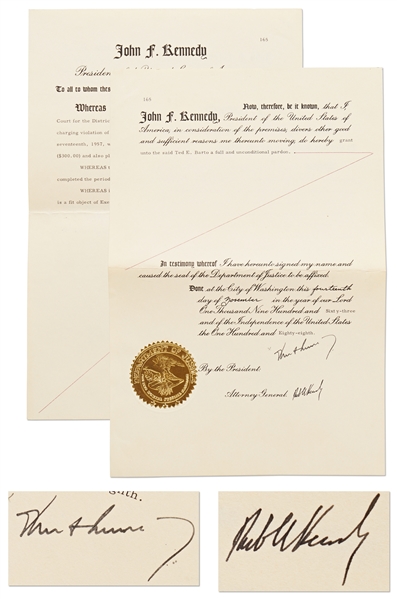 165
John F. Kennedy
To all to whom these
Whereas
Court for the District
charging violation of
seventeenth, 1957,
($300.00) and also
WHEREAS
completed the period
WHEREAS
is a fit object of
165
Now, therefore, be it known, that I
John F. Kennedy, President of the United States of
America, in consideration of the premises, divers other good
and sufficient reasons me thereunto moving, do hereby grant
unto the said Ted E. a full and unconditional pardon.
In testimony whereof I have hereunto signed my name and
caused the seal of the Department of Justice to be affixed.
Done at the City of Washington this fourteenth
day of November in the year of our Lord
One Thousand Nine Hundred and Sixty-three
and of the Independence of the United States
the One Hundred and Eighty-eighth.
By the President:
Attorney General